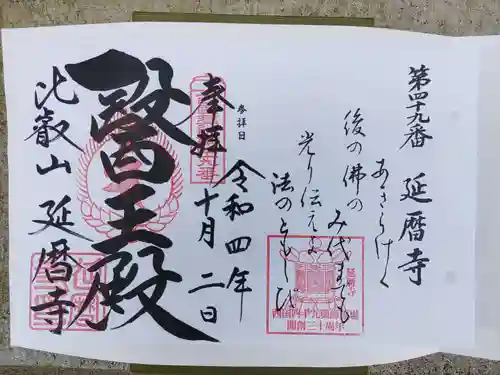 第四十九番　延暦寺
あきらけく
後の佛の
み代までも
光り伝えよ
法のともしび
参拝日
令和四年
十月二日
奉拝
醫王殿
比叡山　延暦寺
延暦寺
開創三十周年